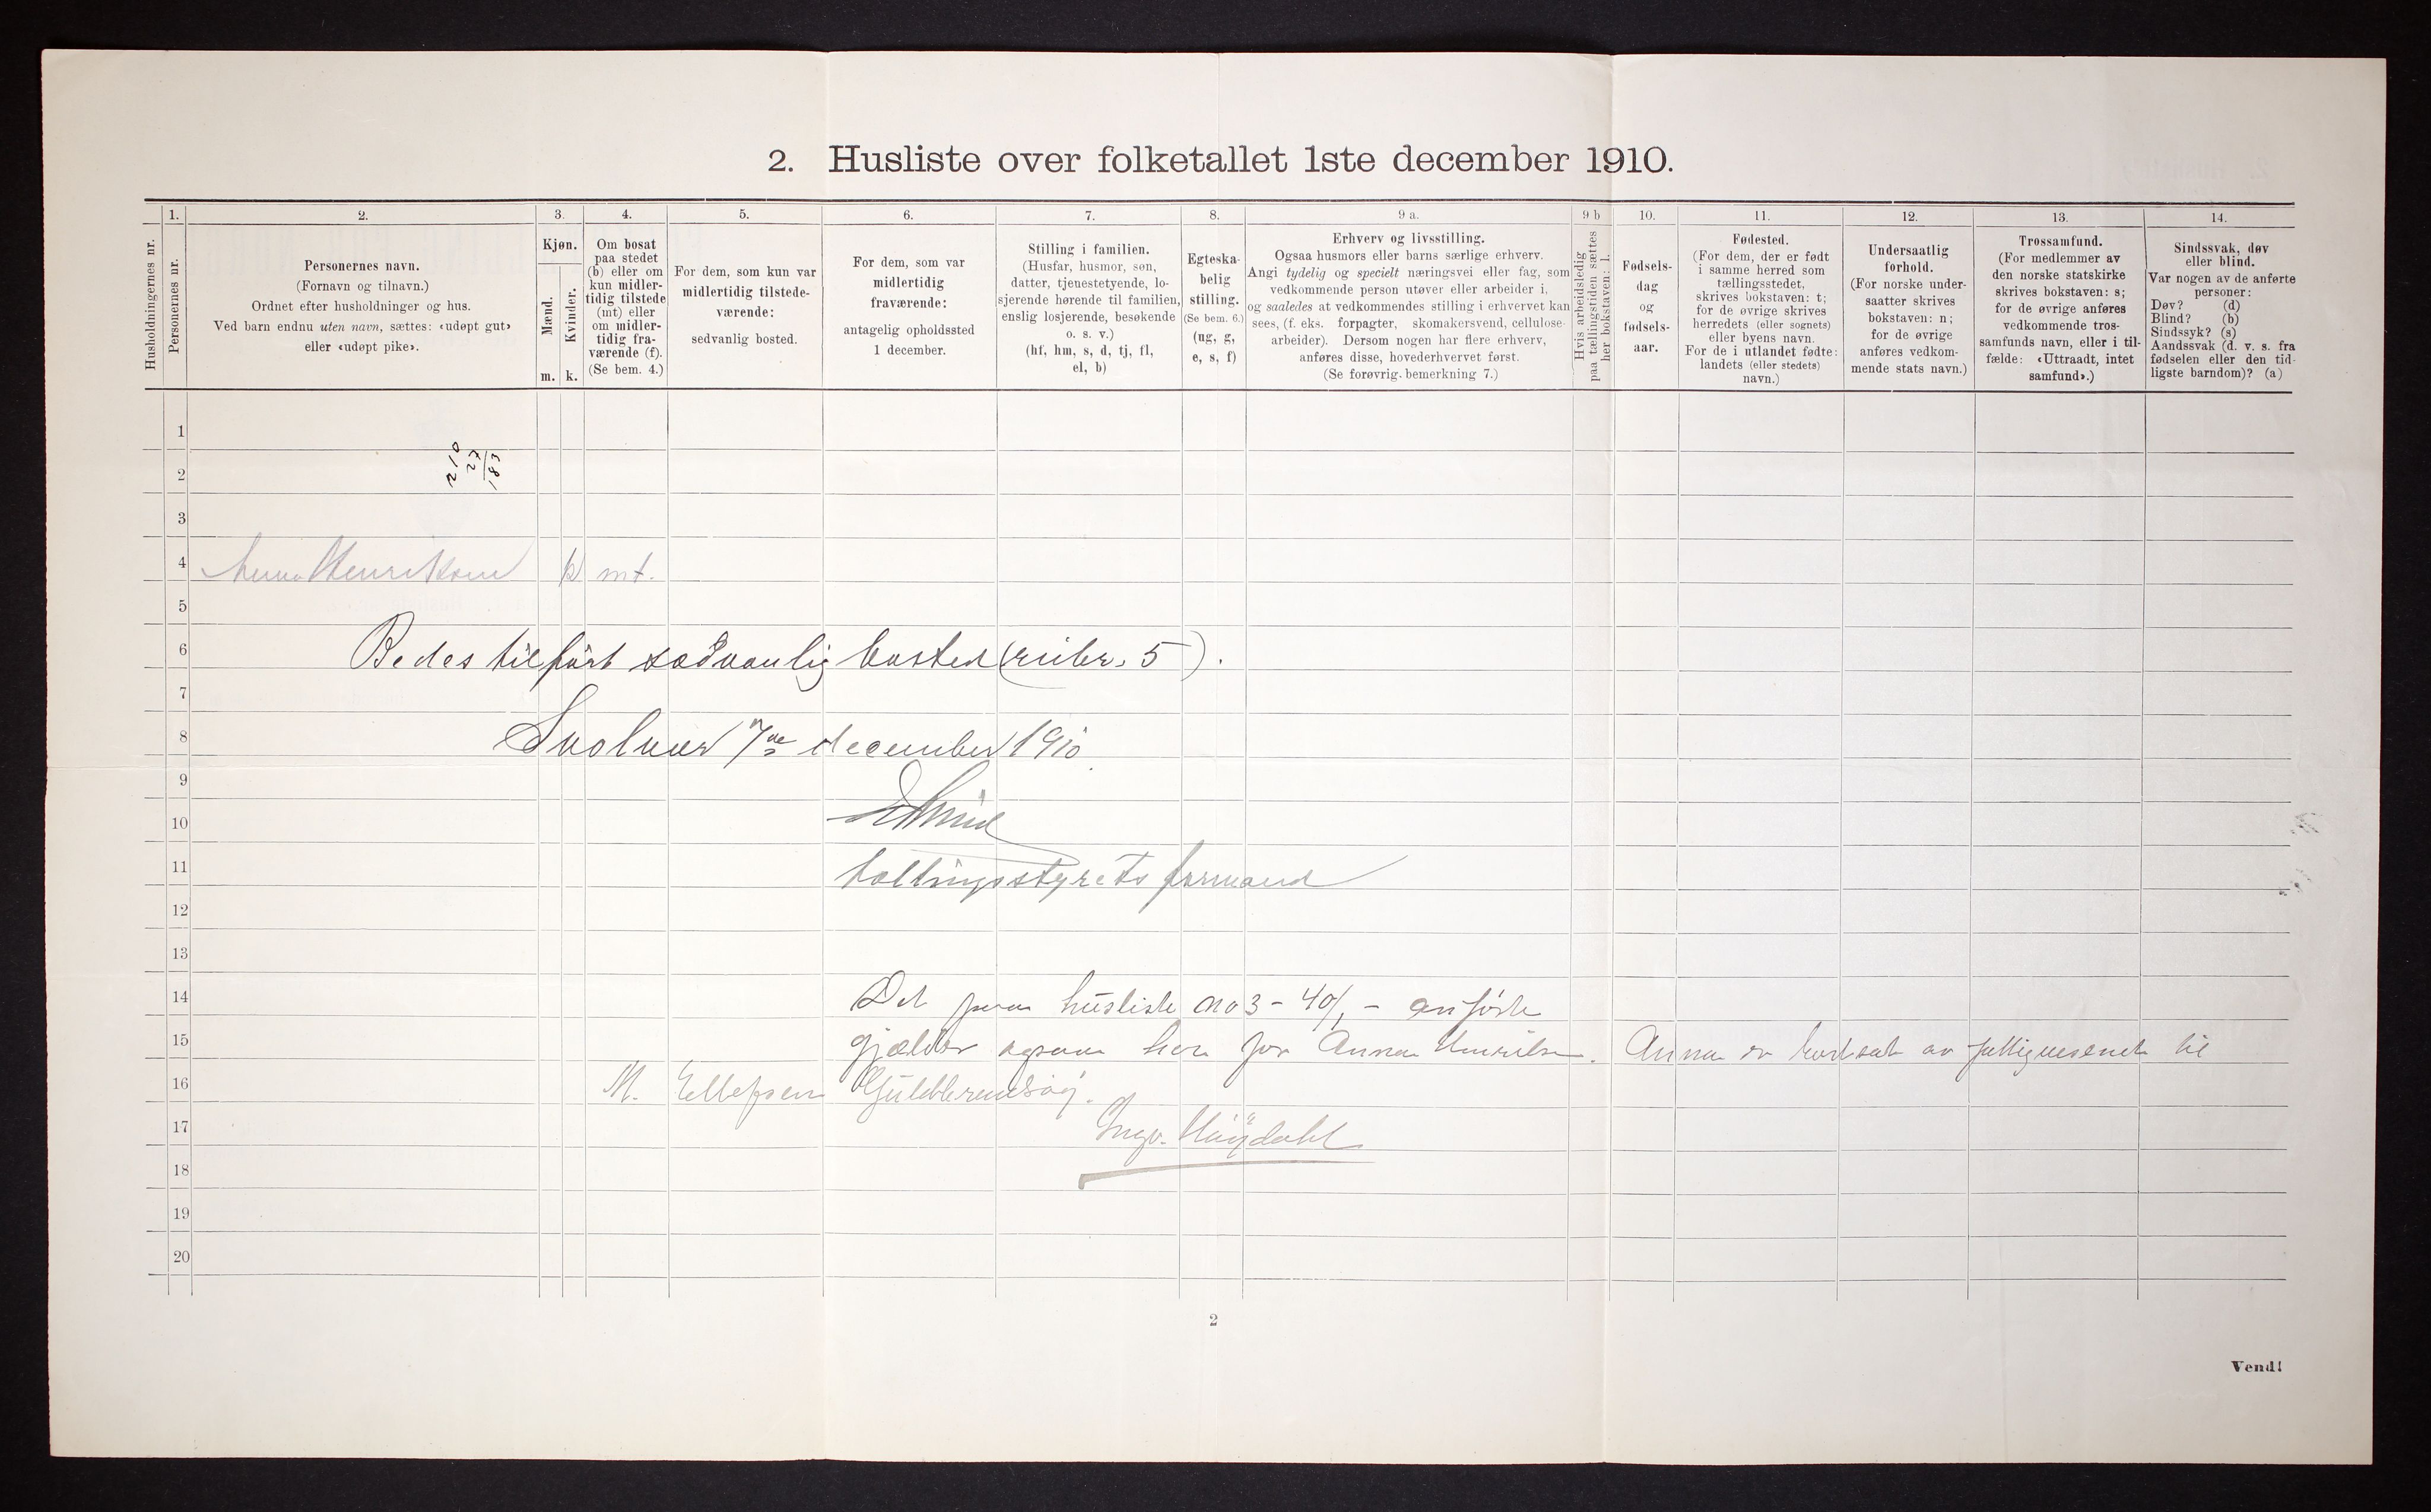 2. Husliste over folketallet 1ste december 1910.
Husholdningernes nr.
1.
Personernes nr.
2.
Personernes navn.
(Fornavn og tilnavn.)
Ordnet efter husholdninger og hus.
Ved barn endnu uten navn, sættes: «udøpt gut»
eller «udøpt pike».
3.
Kjøn.
Mænd.
Kvinder.
m. k.
4.
Om bosat
paa stedet
(b) eller om
kun midler-
tidig tilstede
(mt) eller
om midler-
tidig fra-
værende (f).
(Se bem. 4.)
5.
For dem, som kun var
midlertidig tilstede-
værende:
sedvanlig bosted.
6.
For dem, som var
midlertidig
fraværende:
antagelig opholdssted
1 december.
7.
Stilling i familien.
(Husfar, husmor, søn,
datter, tjenestetyende, lo-
sjerende hørende til familien,
enslig losjerende, besøkende
o. s. v.)
(hf, hm, s, d, tj, fl,
el, b)
8.
Egteska-
belig
stilling.
(Se bem. 6.)
(ug, g,
e, s, f)
9 a.
Erhverv og livsstilling.
Ogsaa husmors eller barns særlige erhverv.
Angi tydelig og specielt næringsvei eller fag, som
vedkommende person utøver eller arbeider i,
og saaledes at vedkommendes stilling i erhvervet kan
sees, (f. eks. forpagter, skomakersvend, cellulose-
arbeider). Dersom nogen har flere erhverv,
anføres disse, hovederhvervet først.
(Se forøvrig bemerkning 7.)
9 b
Hvis arbeidsledig
paa tællingstiden sættes
her bokstaven: l.
10.
Fødsels-
dag
og
fødsels-
aar.
11.
Fødested.
(For dem, der er født
i samme herred som
tællingsstedet,
skrives bokstaven: t;
for de øvrige skrives
herredets (eller sognets)
eller byens navn.
For de i utlandet fødte:
landets (eller stedets)
navn.)
12.
Undersaatlig
forhold.
(For norske under-
saatter skrives
bokstaven: n;
for de øvrige
anføres vedkom-
mende stats navn.)
13.
Trossamfund.
(For medlemmer av
den norske statskirke
skrives bokstaven: s;
for de øvrige anføres
vedkommende tros-
samfunds navn, eller i til-
fælde: «Uttraadt, intet
samfund».)
14.
Sindssvak, døv
eller blind.
Var nogen av de anførte
personer:
Døv? (d)
Blind? (b)
Sindssyk? (s)
Aandssvak (d. v. s. fra
fødselen eller den tid-
ligste barndom)? (a)
1
2
210
27
183
3
4 Anna Henriksen k mt.
5
6 Bedes tilført sædvanlig bosted (rubr. 5).
7
8 Svolvær 7de december 1910
9
10
11 tællingsstyrets formand
12
13
14 Det paa husliste no 3 - 40/1 - anførte
15 gjælder ogsaa her for Anna Henriksen. Anna er bortsat av fattigvæsenet til
16 M. Ellefsen Guldbrandsøy.
17 Ingv. Høydahl
18
19
20
2
Vend!